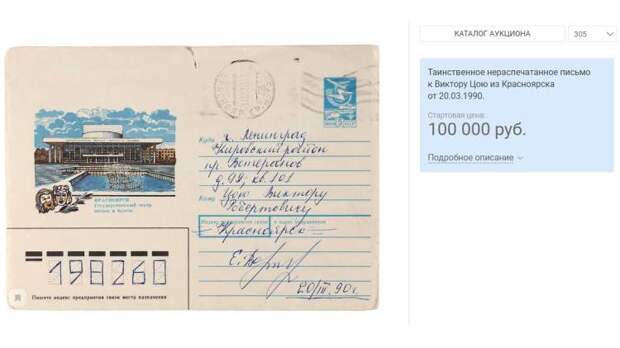 КАТАЛОГ АУКЦИОНА
305
Таинственное нераспечатанное письмо
к Виктору Цою из Красноярска
от 20.03.1990.
Стартовая цена:
100 000 руб.
Подробное описание
Куда г. Ленинград
Кировский район
пр. Ветеранов
д. 99, кв. 101
Кому Цою Виктору
Робертовичу
Индекс предприятия связи и адрес отправителя
Красноярск
20/III. 90г.
КРАСНОЯРСК
Государственный театр
оперы и балета
198260
Пишите индекс предприятия связи места назначения